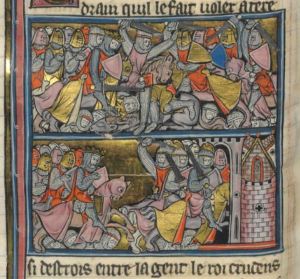 drain quil le fait voler a tere
si destrois entre la gent le roi crudens